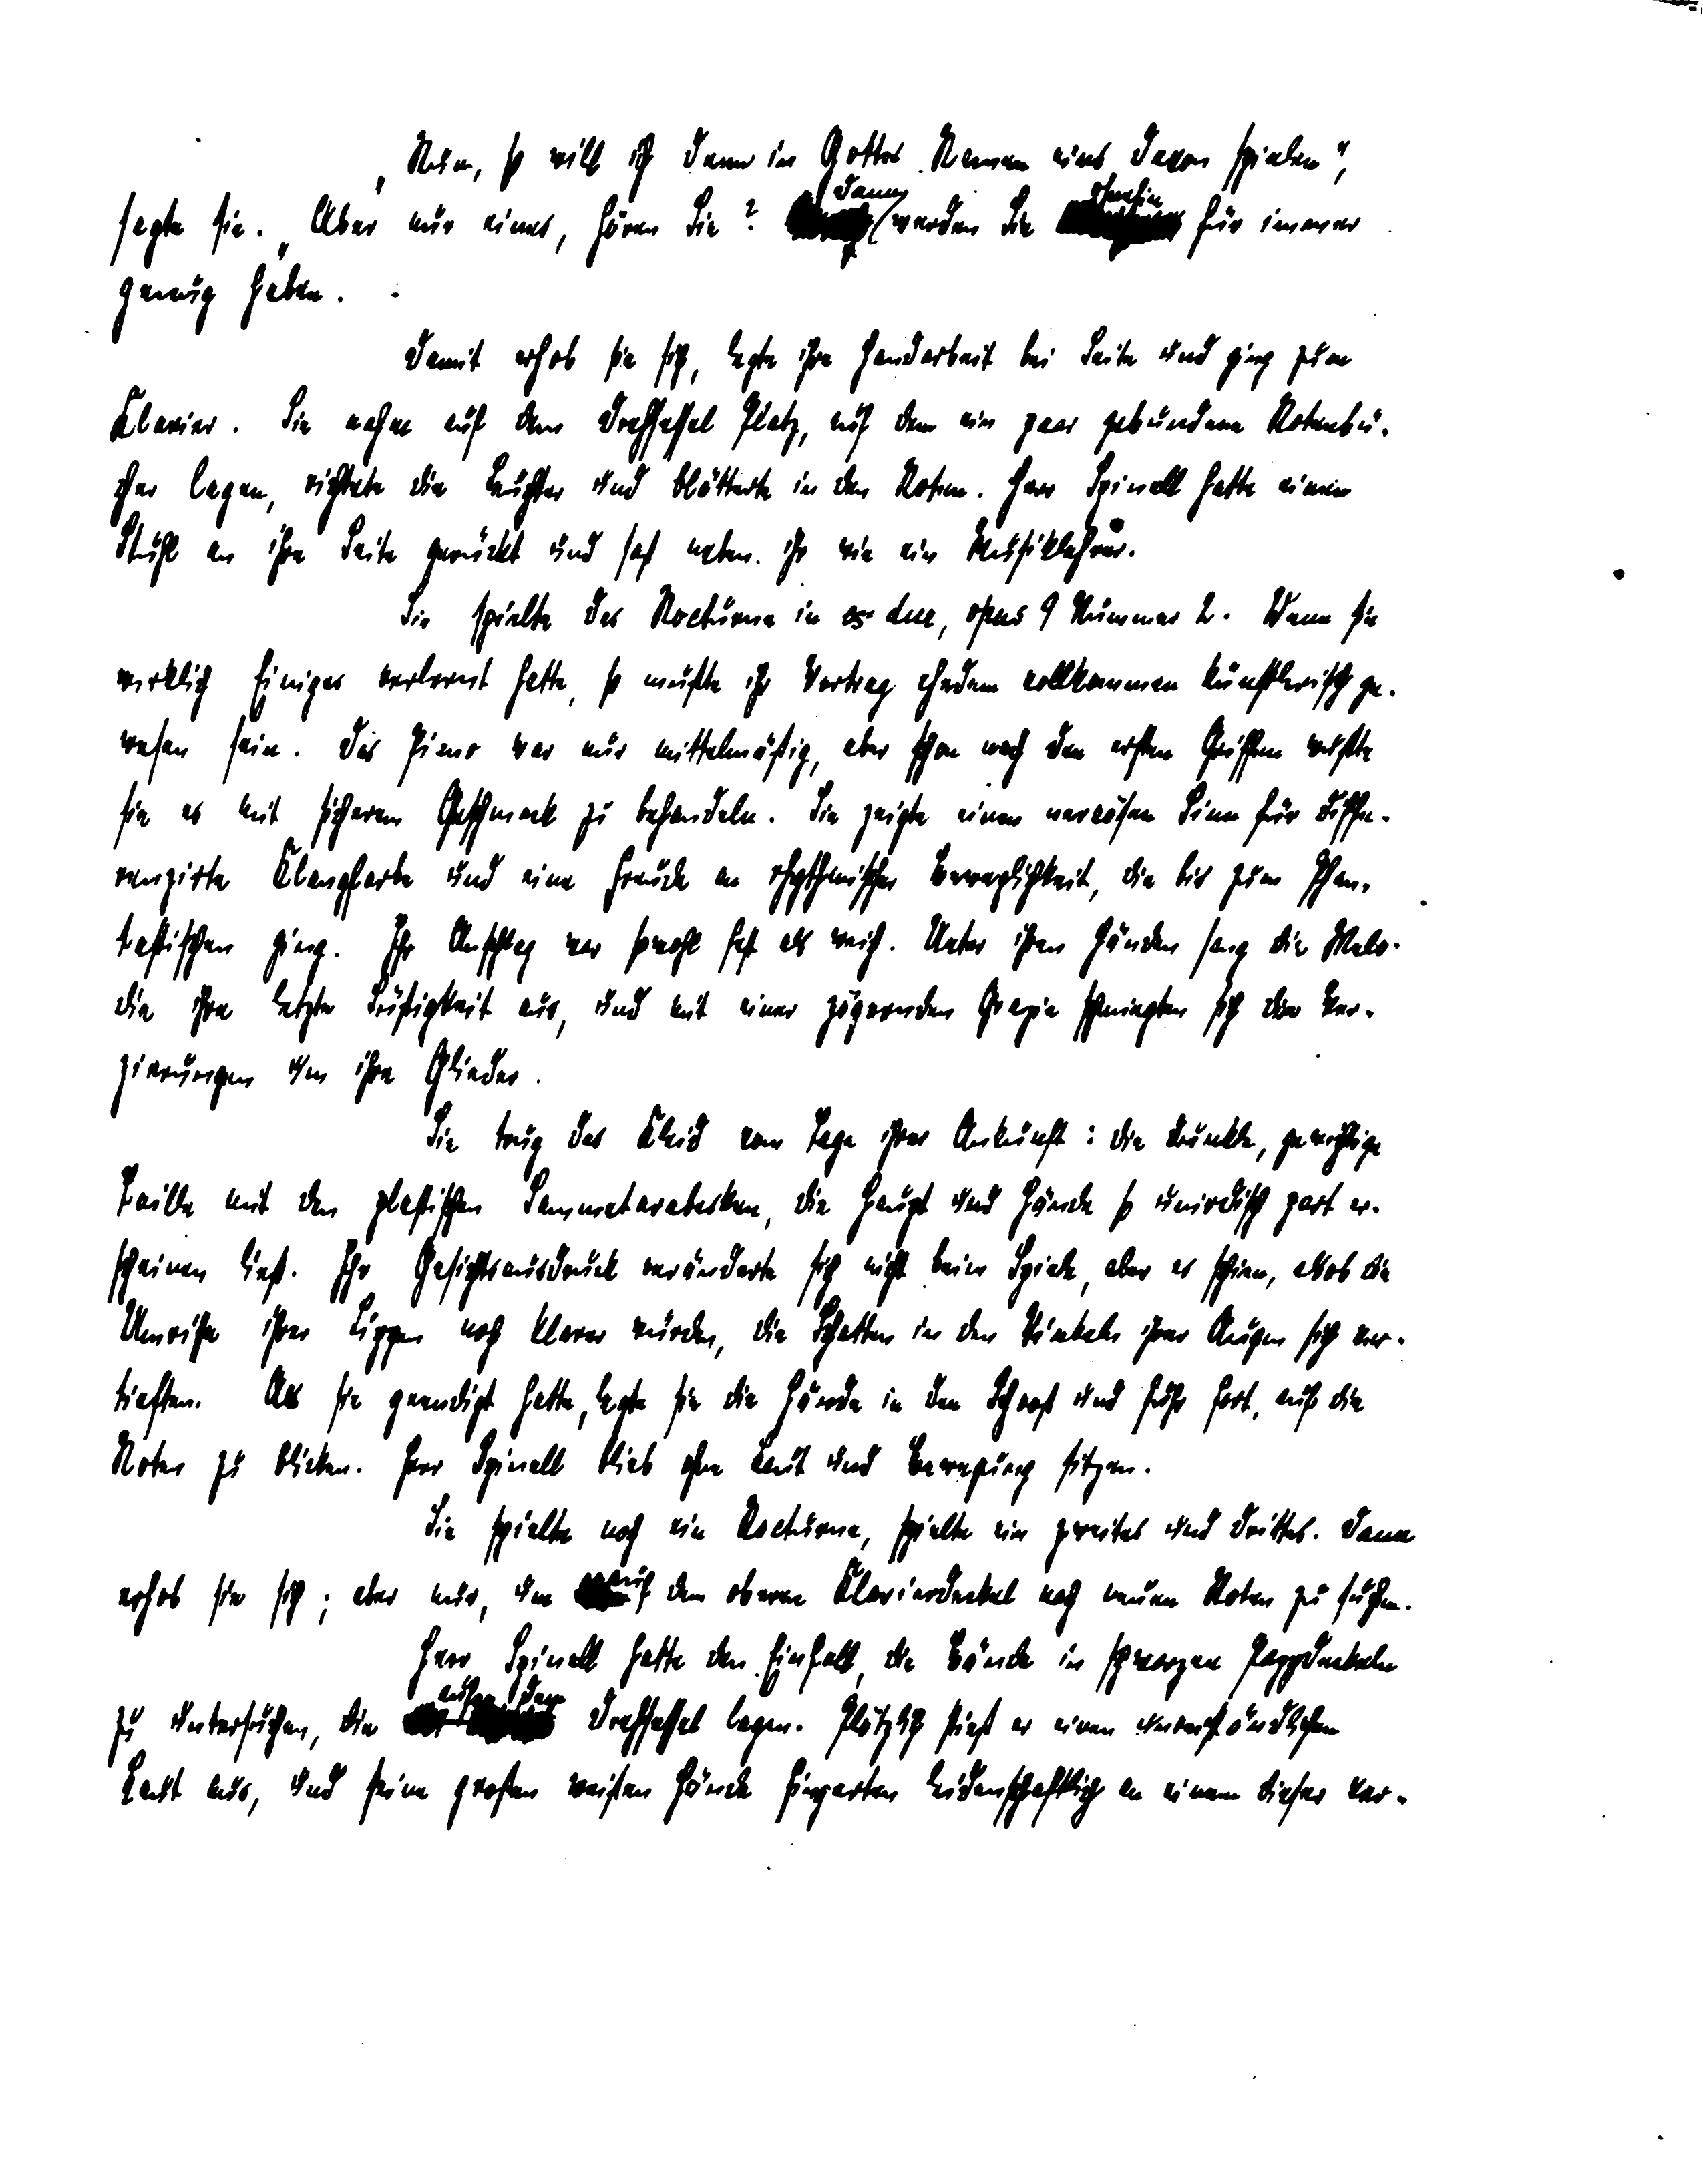 „Nun, so will ich denn in Gottes Namen eins davon spielen“,
sagte sie. „Aber nur eines, hören Sie? Dann werden Sie ohnehin für immer
genug haben.
Damit erhob sie sich, legte ihre Handarbeit bei Seite und ging zum
Klavier. Sie nahm auf dem Drehsessel Platz, auf dem ein paar gebundene Notenbü-
cher lagen, richtete die Leuchter und blätterte in den Noten. Herr Spinell hatte einen
Stuhl an ihre Seite gerückt und saß neben ihr wie ein Musiklehrer.
Sie spielte das Nocturne in es-dur, opus 9 Nummer 2. Wenn sie
wirklich Einiges verlernt hatte, so mußte ihr Vortrag ehedem vollkommen künstlerisch ge-
wesen sein. Das Piano war nur mittelmäßig, aber schon nach den ersten Griffen wußte
sie es mit sicherem Geschmack zu behandeln. Sie zeigte einen nervösen Sinn für diffe-
renzirte Klangfarbe und eine Freude an rhythmischer Beweglichkeit, die bis zum Phan-
tastischen ging. Ihr Anschlag war sowohl fest als weich. Unter ihren Händen sang die Melo-
die ihre letzte Süßigkeit aus, und mit einer zögernden Grazie schmiegten sich die Ver-
zierungen um ihre Glieder.
Sie trug das Kleid vom Tage ihrer Ankunft: die dunkle, gewichtige
Taille mit den plastischen Sammetarabesken, die Haupt und Hände so unirdisch zart er-
scheinen ließ. Ihr Gesichtsausdruck veränderte sich nicht beim Spiele, aber es schien, als ob die
Umrisse ihrer Lippen noch klarer würden, die Schatten in den Winkeln ihrer Augen sich ver-
tieften. Als sie geendigt hatte, legte sie die Hände in den Schooß und fuhr fort, auf die
Noten zu blicken. Herr Spinell blieb ohne Laut und Bewegung sitzen.
Sie spielte noch ein Nocturne, spielte ein zweites und drittes. Dann
erhob sie sich; aber nur, um auf dem oberen Klavierdeckel nach neuen Noten zu suchen.
Herr Spinell hatte den Einfall, die Bände in schwarzen Pappdeckeln
zu untersuchen, die auf dem Drehsessel lagen. Plötzlich stieß er einen unverständlichen
Laut aus, und seine großen weißen Hände fingerten leidenschaftlich an einem dieser ver-